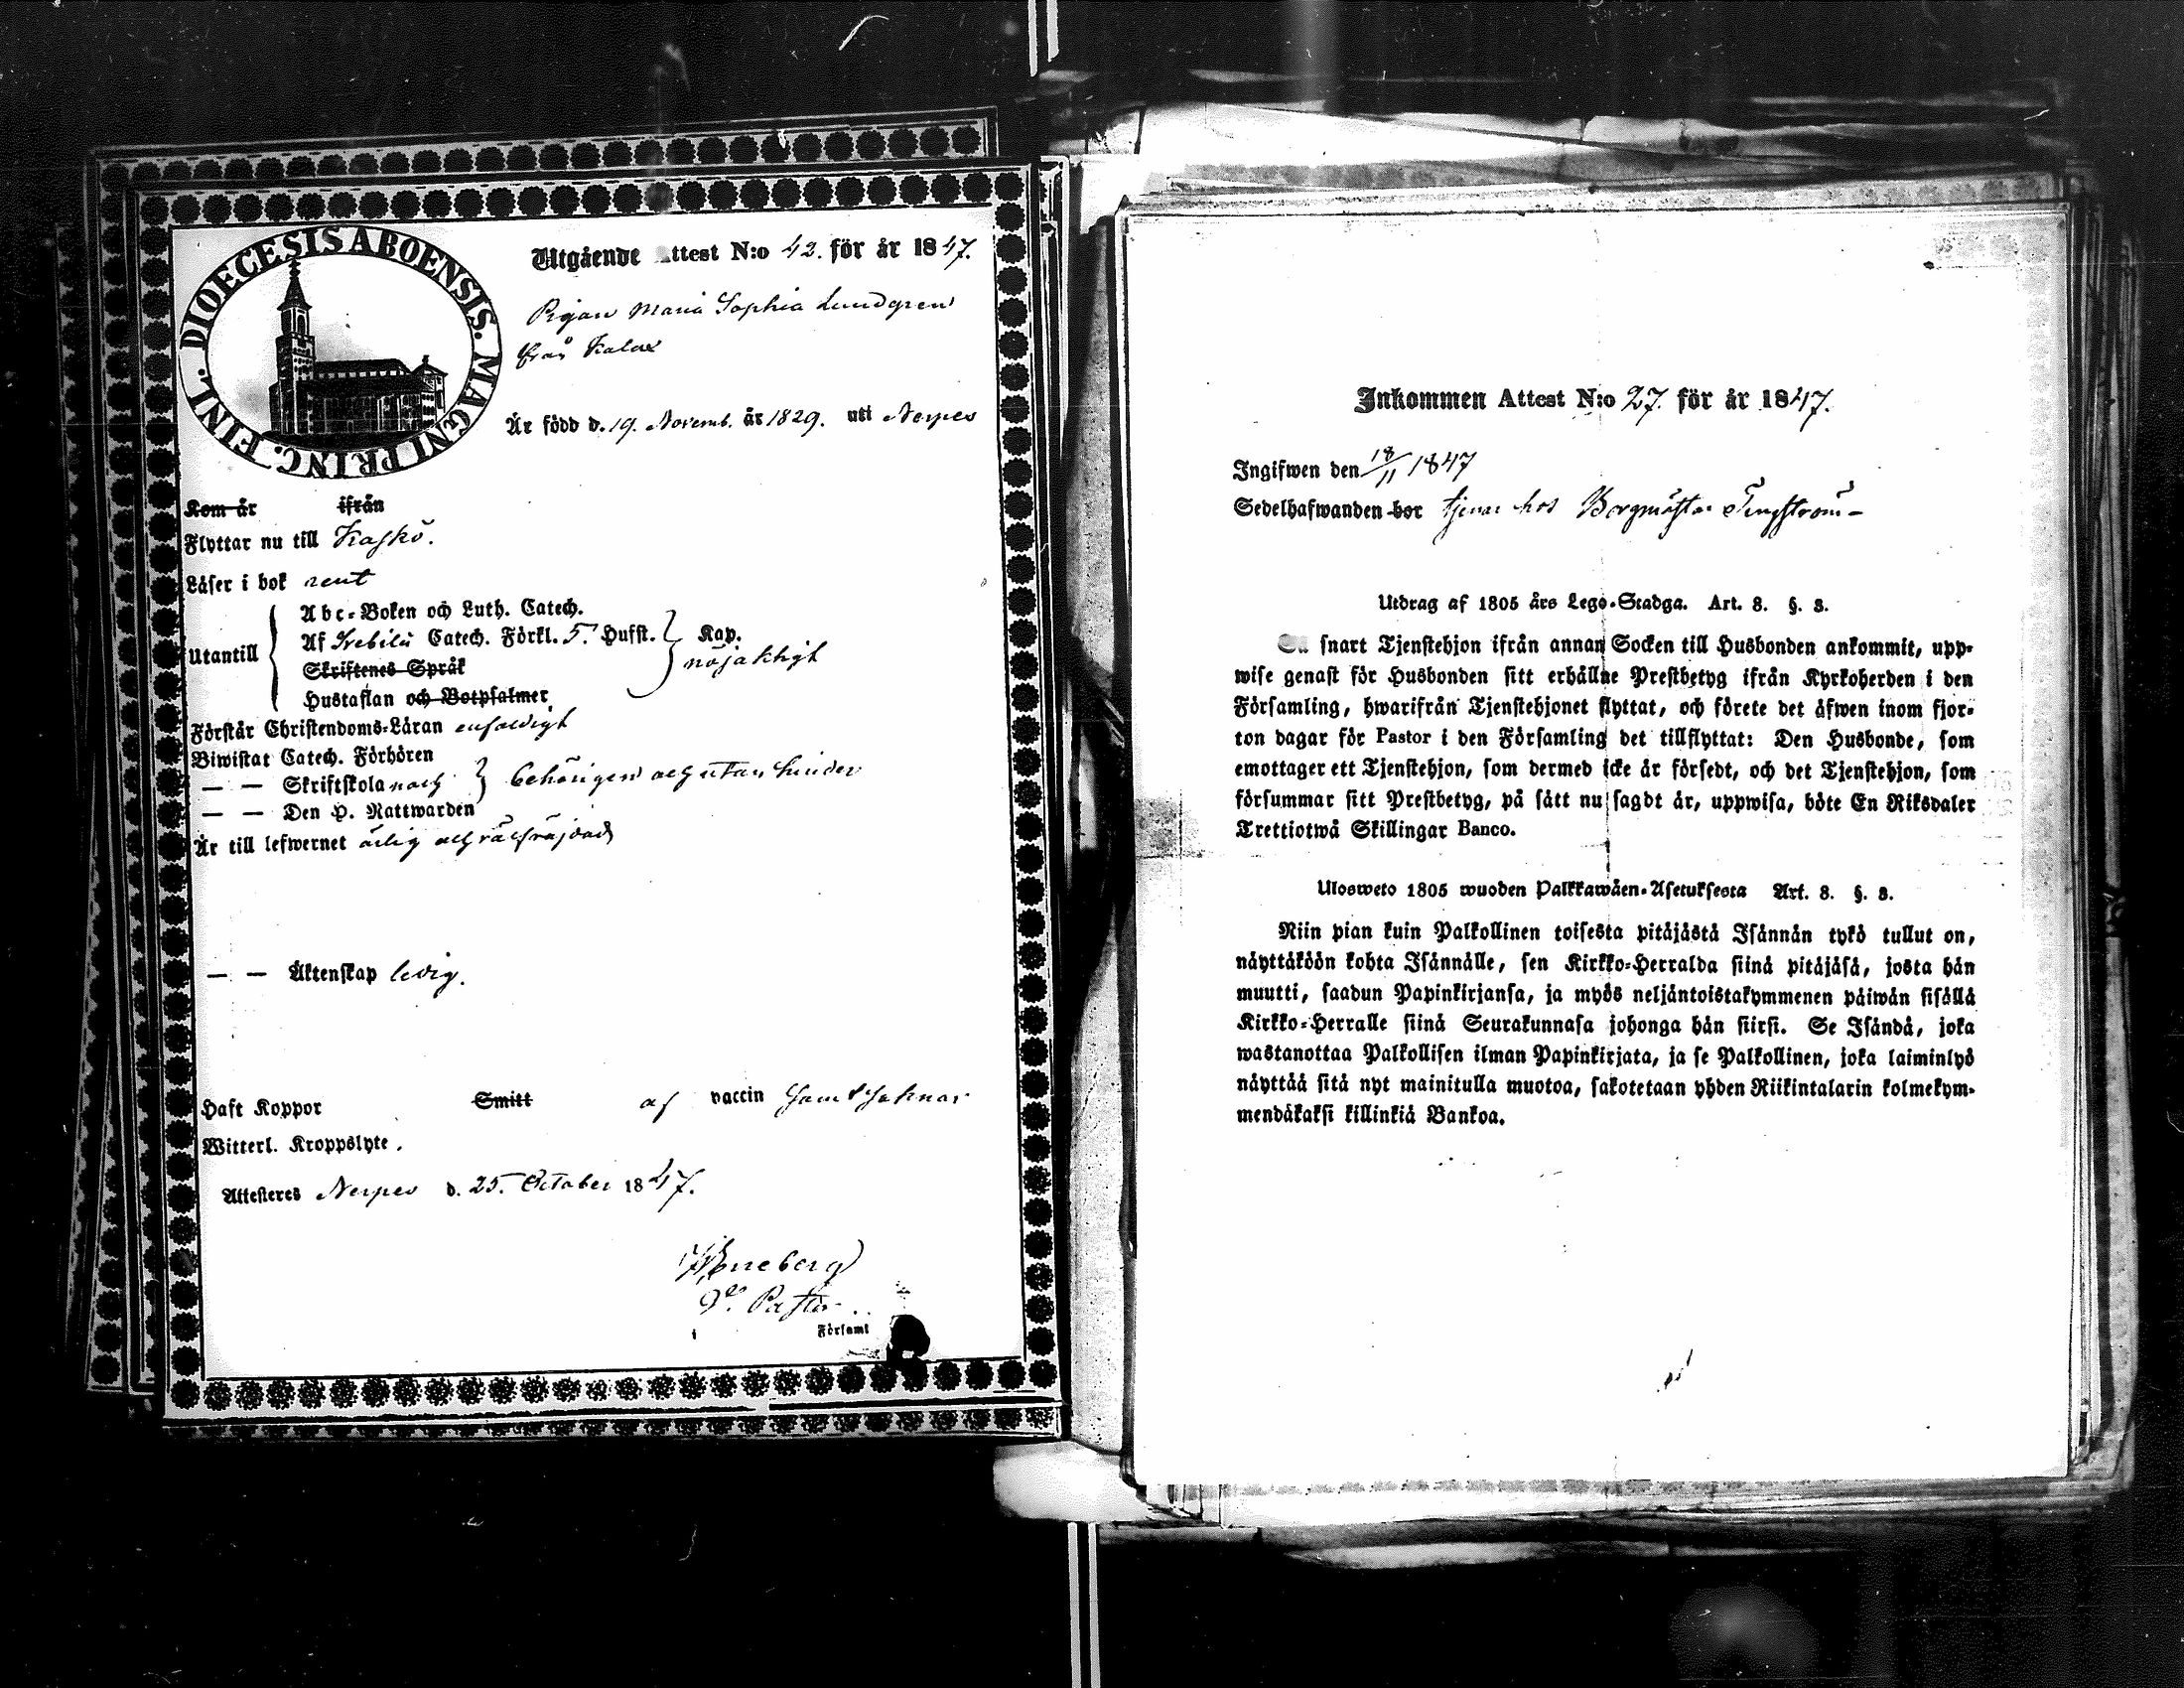 DIOECESIS ABOENSIS. MAGNI PRINC. FINL.
Utgående Attest N:o 42. för år 1847.
Pigan Maria Sophia Lundgren
från Kalax
Är född d. 19. Novemb. år 1829. uti Nerpes
Kom år ifrån
Flyttar nu till Kaskö.
Läser i bok rent
Abc-Boken och Luth. Catech.
Utantill Af Svebilii Catech. Förkl. 5. Hufst. Kap.
nöjaktigt
Skriftenes Språk
Hustaflan och Botpsalmer
Förstår Christendoms-Läran enfaldigt
Biwistat Catech. Förhören
— — Skriftskola och behörigen och utan hinder
— — Den H. Nattwarden
Är till lefwernet ärlig och väl
— — Äktenskap ledig.
Haft Koppor Smitt af vaccin samt saknar
Witterl. Kroppslyte.
Attesteras Nerpes d. 25. October 1847.
Pastor
Förfaml
Inkommen Attest N:o 27. för år 1847.
Ingifwen den 18/11 1847
Sedelhafwanden bor tjenar hos Borgmästar Tengström
Utdrag af 1805 års Lego-Stadga. Art. 8. §. 3.
Så snart Tjenstehjon ifrån annan Socken till Husbonden ankommit, upp-
wise genast för Husbonden sitt erhållne Prestbetyg ifrån Kyrkoherden i den
Församling, hwarifrån Tjenstehjonet flyttat, och förete det äfwen inom fjor-
ton dagar för Pastor i den Församling det tillflyttat: Den Husbonde, som
emottager ett Tjenstehjon, som dermed icke är försedt, och det Tjenstehjon, som
försummar sitt Prestbetyg, på sätt nu sagdt är, uppwisa, böte En Riksdaler
Trettiotwå Skillingar Banco.
Ulosweto 1805 wuoden Palkkawäen-Asetuksesta Art. 8. §. 3.
Niin pian kuin Palkollinen toisesta pitäjästä Isännän tykö tullut on,
näyttäköön kohta Isännälle, sen Kirkko-Herralda siinä pitäjäsä, josta hän
muutti, saadun Papinkirjansa, ja myös neljäntoistakymmenen päiwän sisällä
Kirkko-Herralle siinä Seurakunnasa johonga hän siirsi. Se Isändä, joka
wastanottaa Palkollisen ilman Papinkirjata, ja se Palkollinen, joka laiminlyö
näyttää sitä nyt mainitulla muotoa, sakotetaan yhden Riikintalarin kolmekym-
mendäkaksi killinkiä Bankoa.